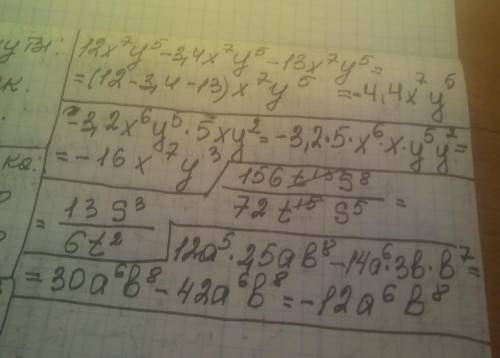 12x⁷y⁵-3,4x⁷y⁵-13x⁷y⁵=
=(12-3,4-13)x⁷y⁵ =-4,4x⁷y⁵
-3,2x⁶y⁵·5xy²=-3,2·5·x⁶·x·y⁵y²=
=-16x⁷y³
156t¹³s⁸/72t¹⁵s⁵=
=13s³/6t²
12a⁵·2,5ab⁸-14a⁶·3b·b⁷=
=30a⁶b⁸-42a⁶b⁸=-12a⁶b⁸